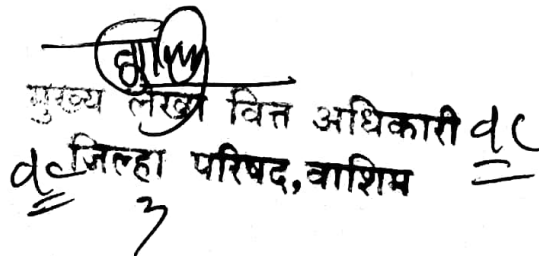 मुख्य लेखा वित्त अधिकारी
जिल्हा परिषद,वाशिम